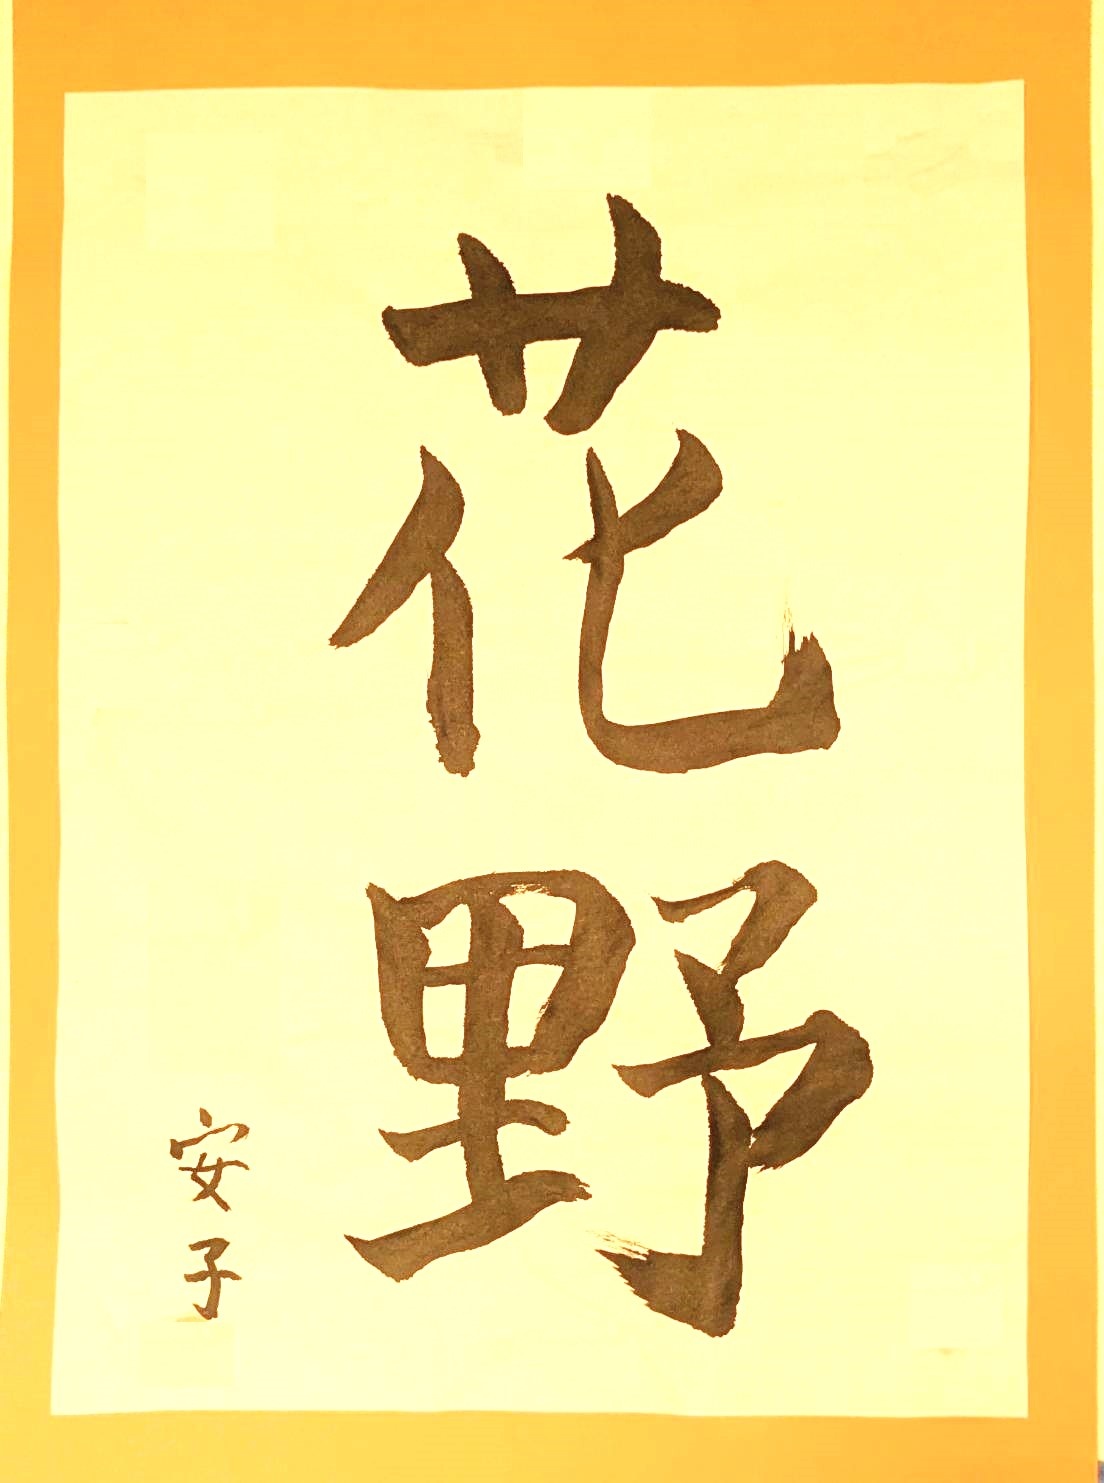 花野
安子